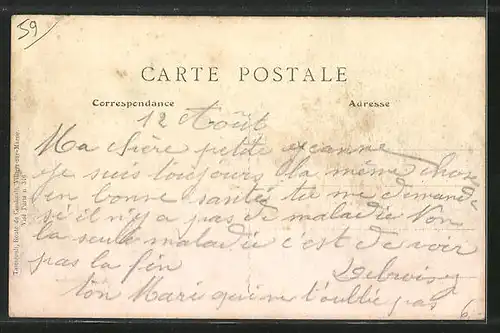 59
CARTE POSTALE
Correspondance
Adresse
12 Août
Ma chère petite Jeanne
Je suis toujours la même chose
en bonne santée tu me demande
si il n'y a pas de maladie Non
la seule maladie c'est de voir
pas la fin
ton Mari qui ne t'oublie pas
6